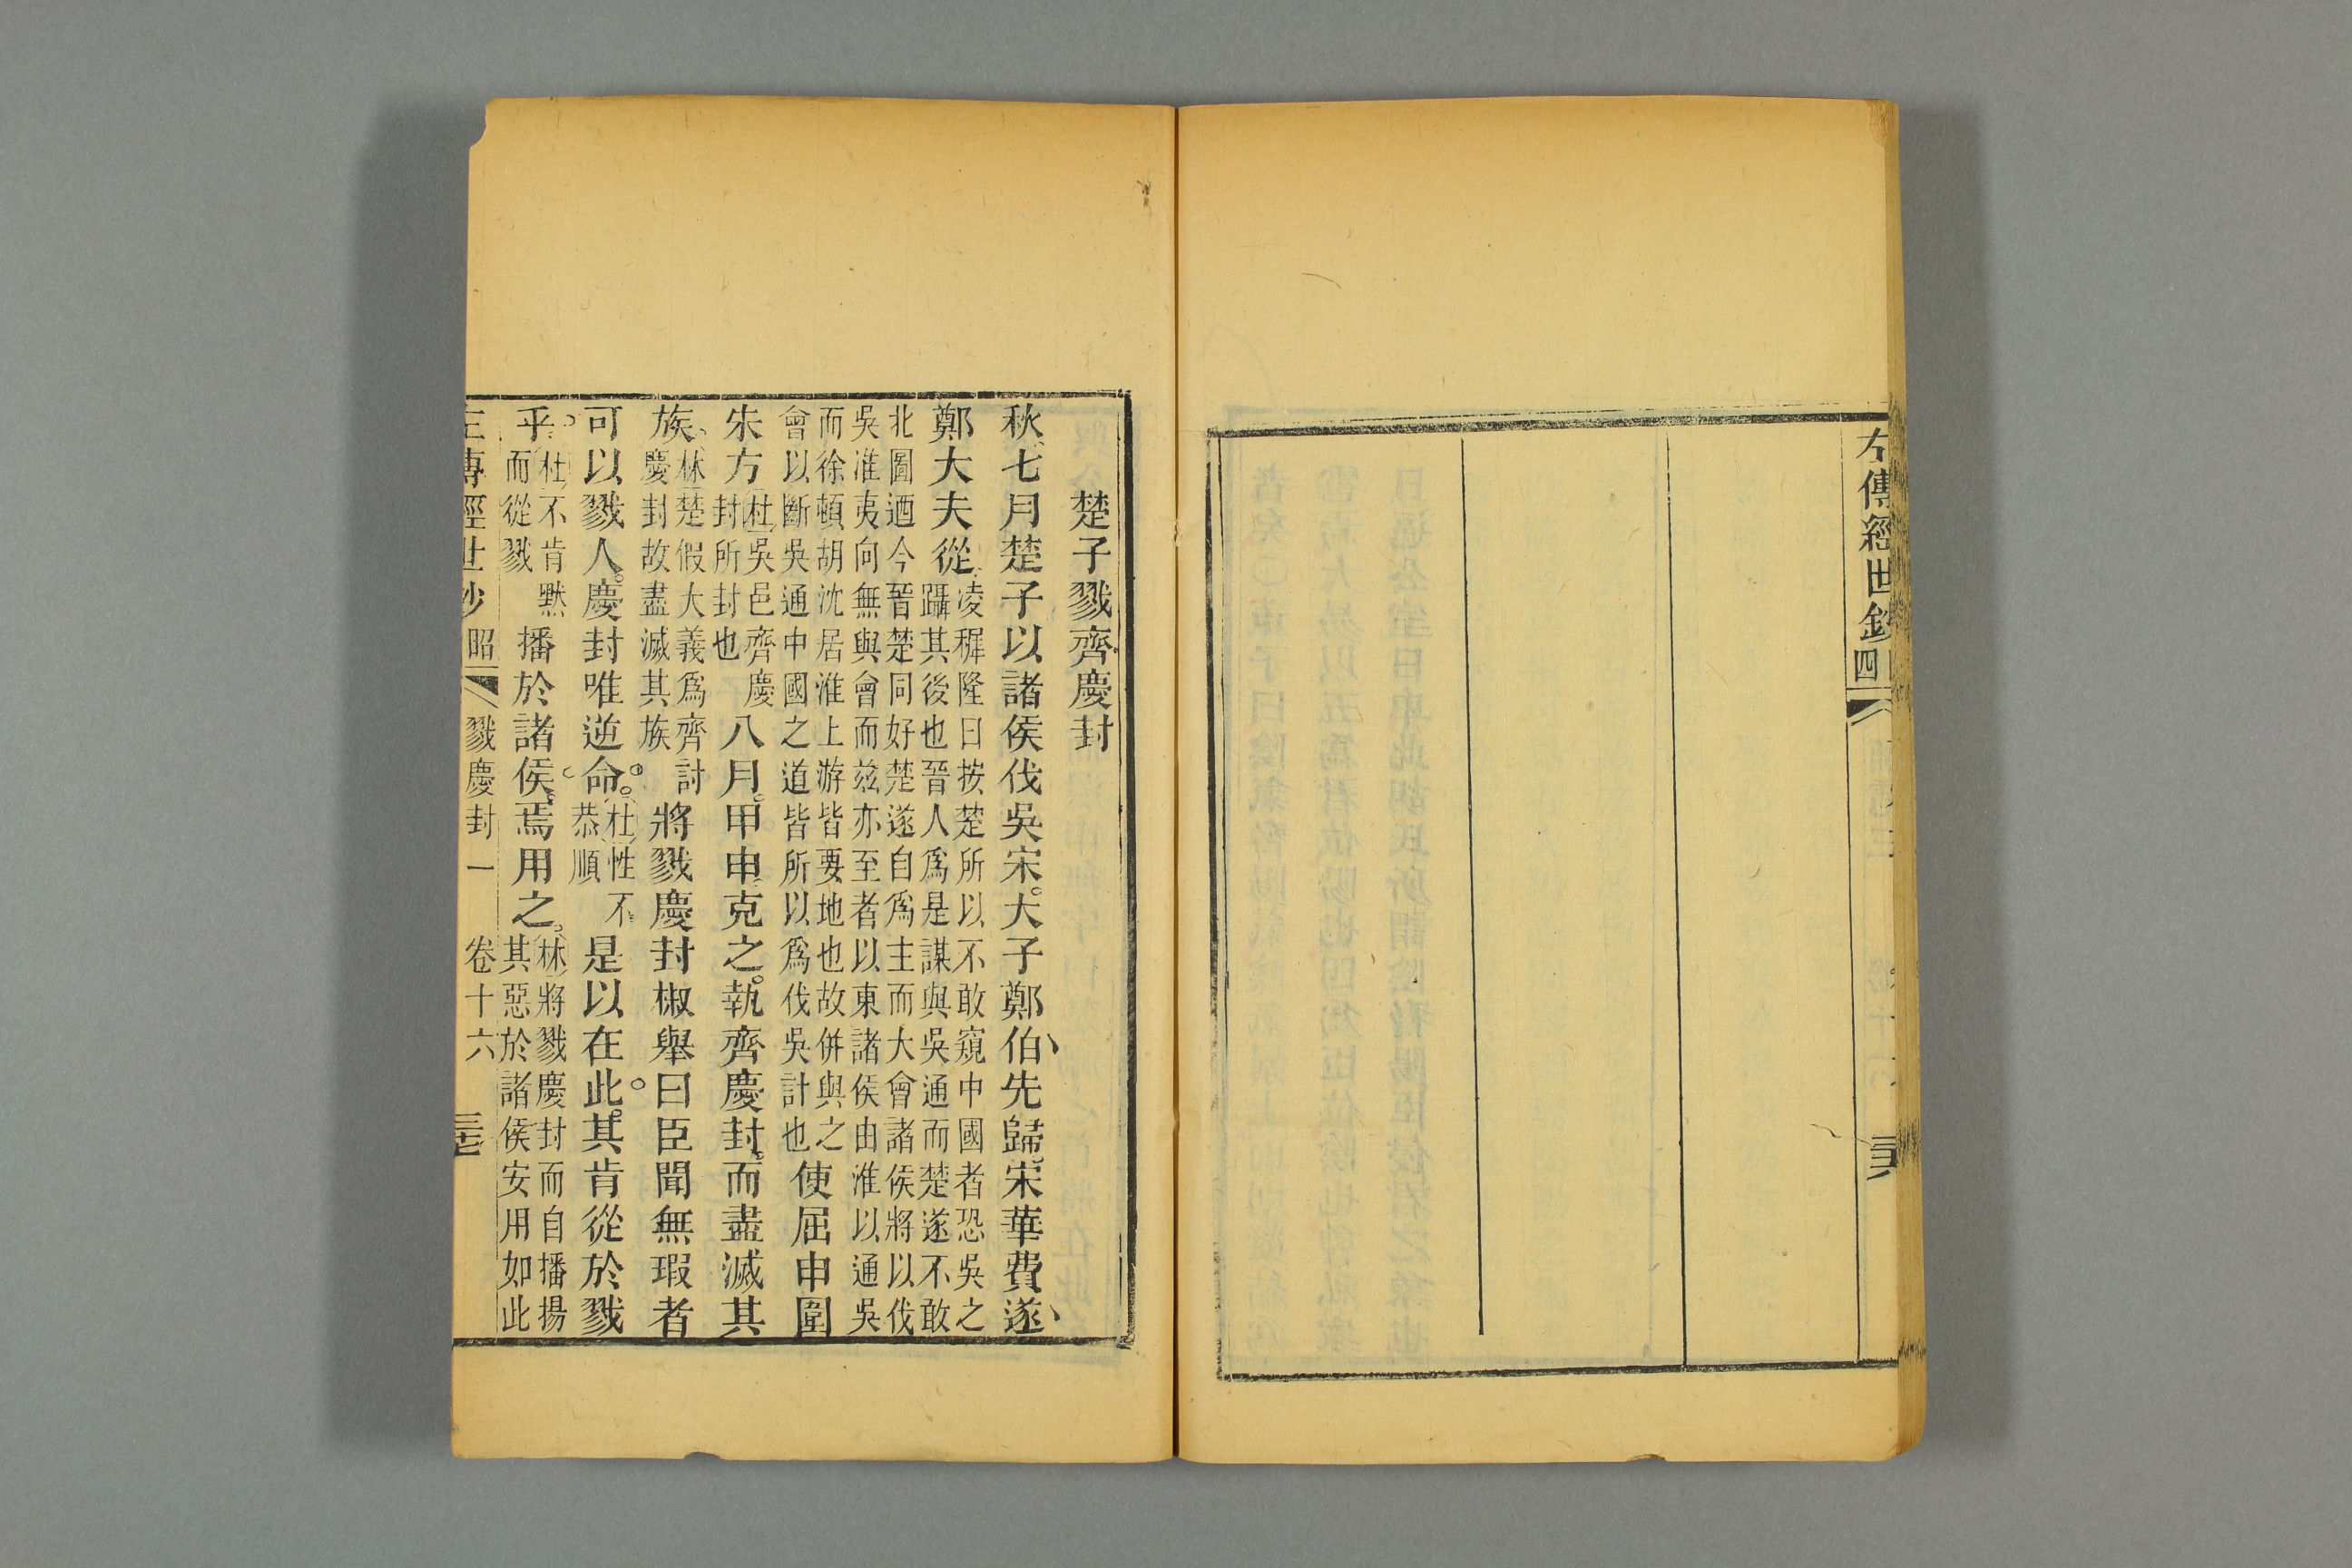 左傳經世鈔
四
三六
楚子戮齊慶封
秋七月楚子以諸侯伐吳宋大子鄭伯先歸宋華費遂
鄭大夫從
凌稺隆曰按楚所以不敢窺中國者恐吳之
躡其後也晉人爲是謀與吳通而楚遂不敢
北圖迺今晉楚同好楚遂自爲主而大會諸侯將以伐
吳淮夷向無與會而茲亦至者以東諸侯由淮以通吳
而徐頓胡沈居淮上游皆要地也故併與之
會以斷吳通中國之道皆所以爲伐吳計也
使屈申圍
朱方
杜吳邑齊慶
封所封也
八月甲申克之執齊慶封而盡滅其
族
林楚假大義爲齊討
慶封故盡滅其族
將戮慶封椒舉曰臣聞無瑕者
可以戮人慶封唯逆命
杜性不
恭順
是以在此其肯從於戮
乎
杜不肯默
而從戮
播於諸侯焉用之
林將戮慶封而自播揚
其惡於諸侯安用如此
左傳經世鈔
昭
戮慶封一
卷十六
三七